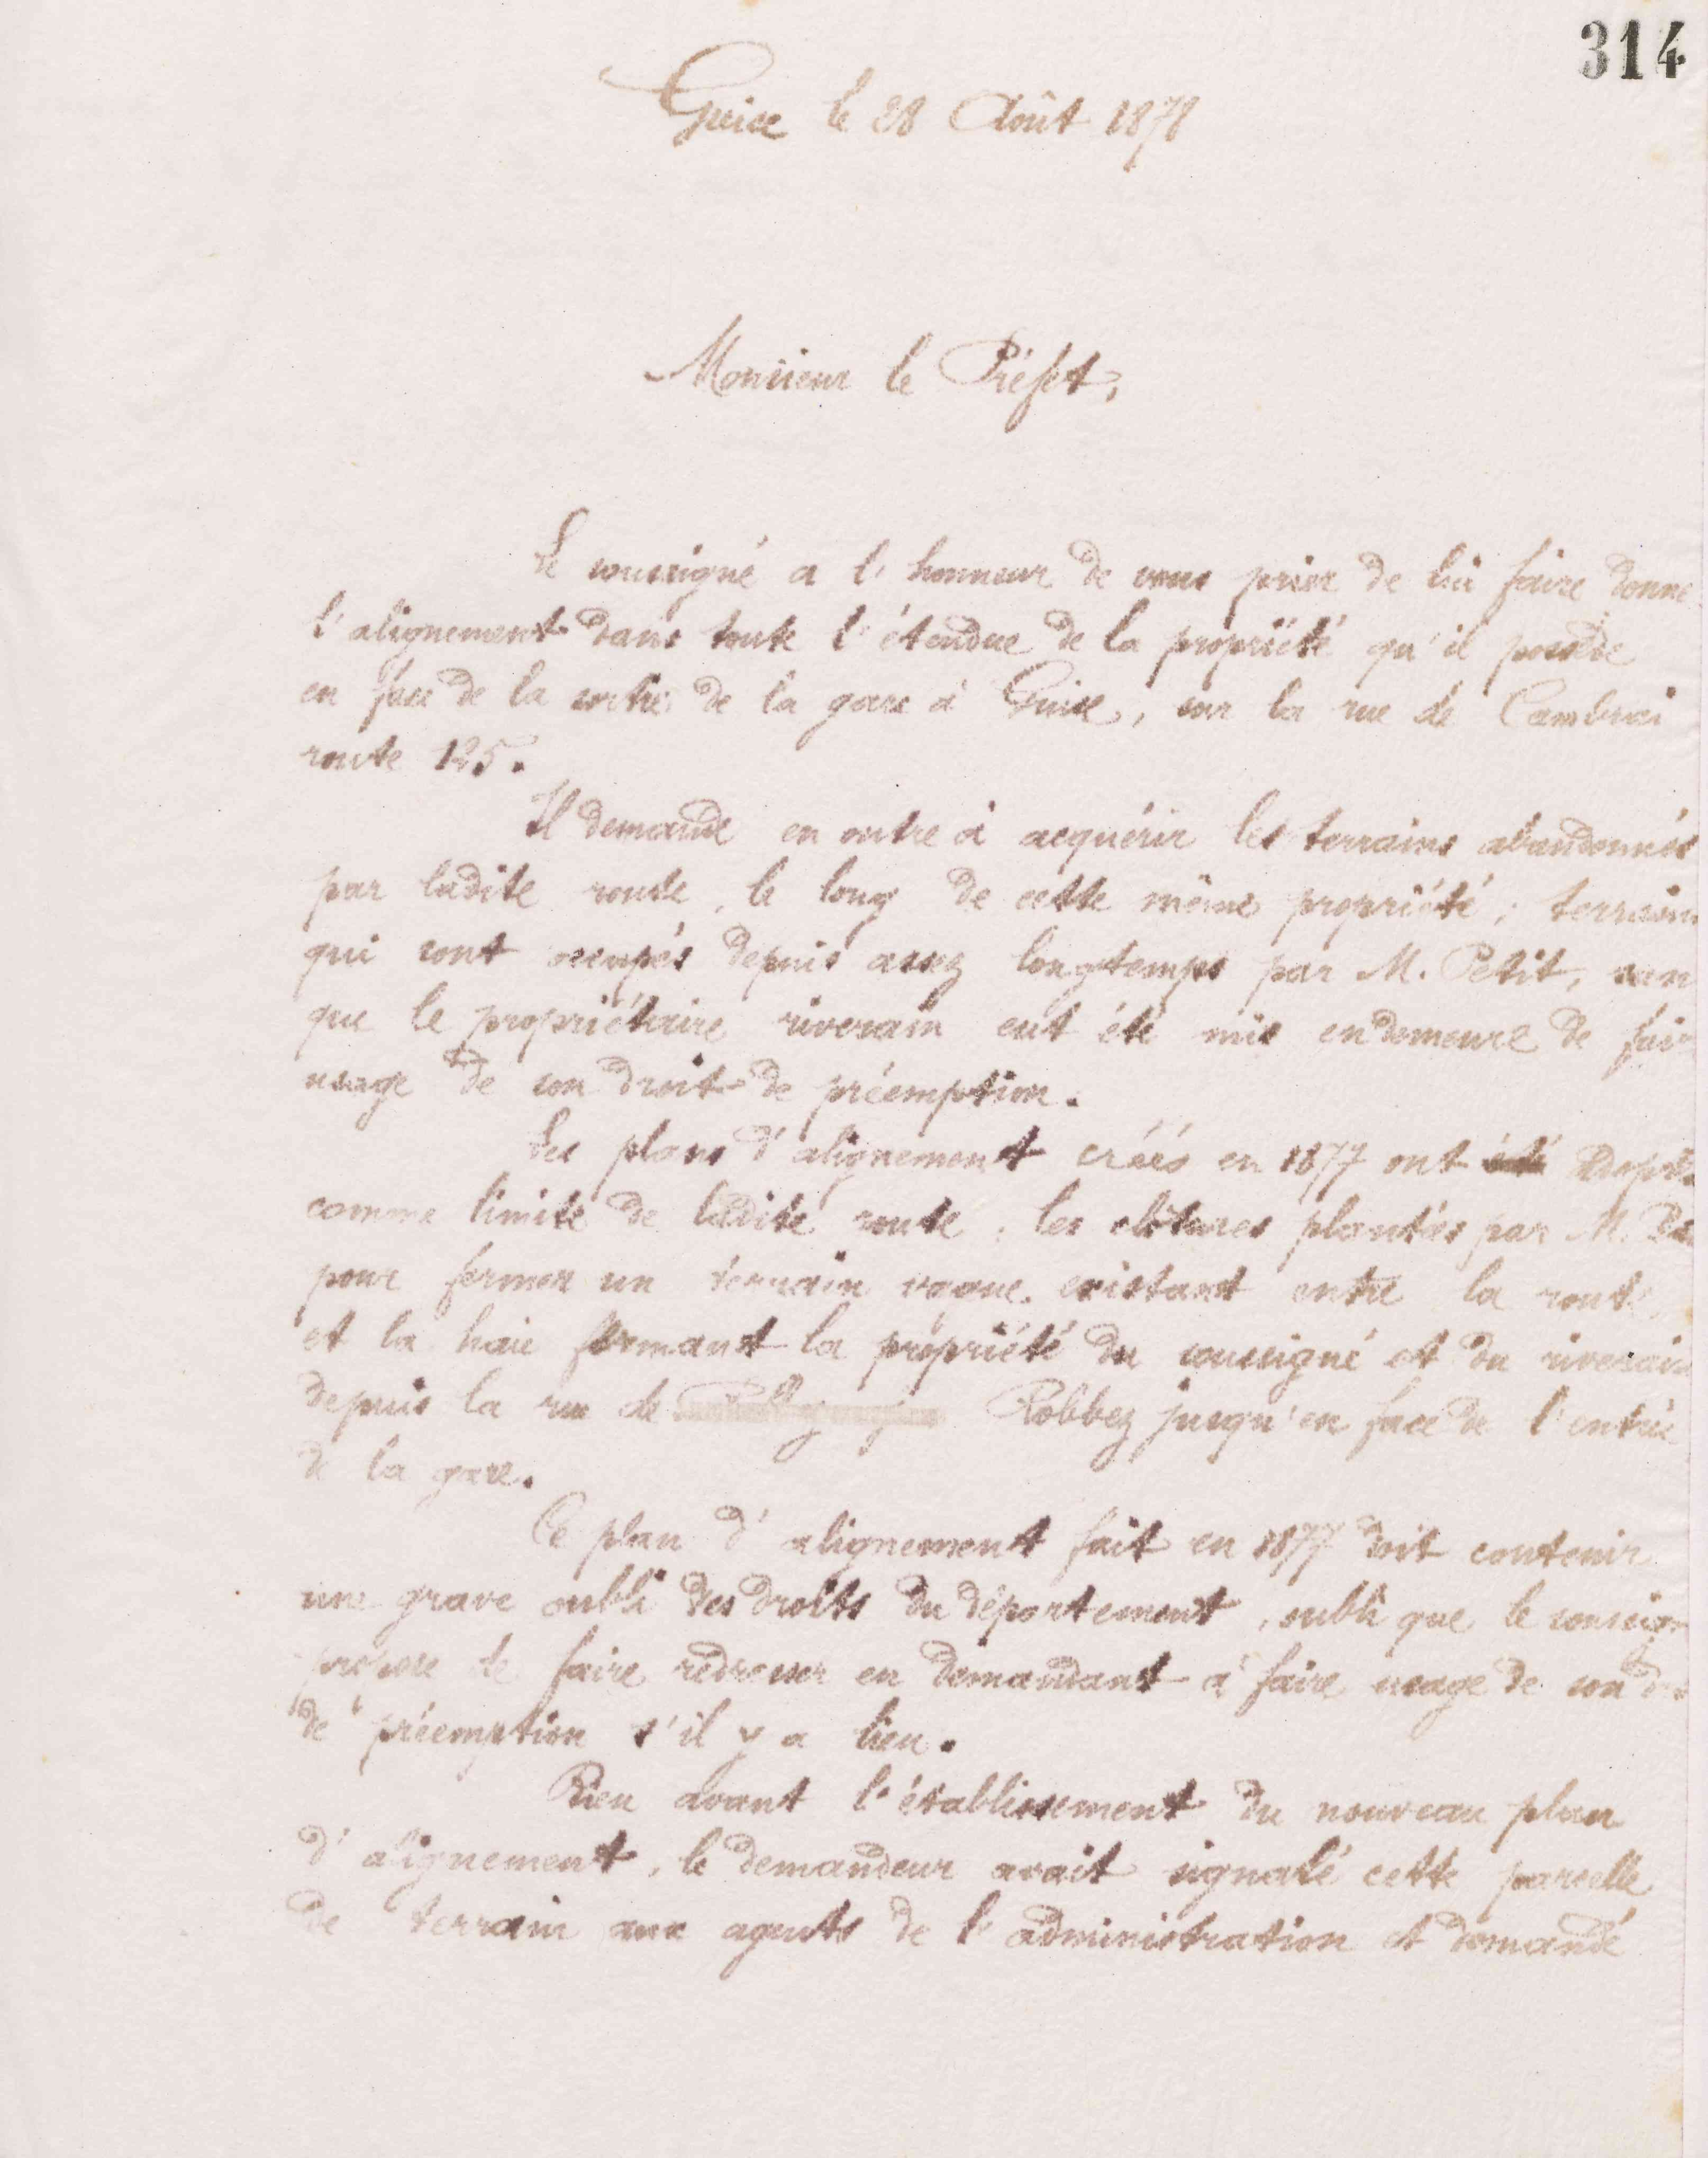 314
Guise le 28 Août 1878
Monsieur le Préfet,
Le soussigné a l'honneur de vous prier de lui faire donne
l'alignement dans toute l'étendue de la propriété qu'il possède
en face de la sortie de la gare à Guise, sur la rue de Cambrai
route 125.
Il demande en outre à acquérir les terrains abandonnés
par ladite route, le long de cette même propriété ; terrains
qui sont occupés depuis assez longtemps par M. Petit, san
que le propriétaire riverain eut été mis en demeure de fair
usage de son droit de préemption.
Les plans d'alignement créés en 1877 ont été adopté
comme limite de ladite route, les clôtures plantées par M. Pe
pour fermer un terrain vague existant entre la route,
et la haie fermant la propriété du soussigné et du riverain
depuis la rue de Robbez jusqu'en face de l'entrée
de la gare.
Ce plan d'alignement fait en 1877 doit contenir
une grave oubli des droits du département, oubli que le soussign
propose de faire redresser en demandant à faire usage de son d
de préemption s'il y a lieu.
Bien avant l'établissement du nouveau plan
d'alignement, le demandeur avait signalé cette parcelle
de terrain aux agents de l'administration et demandé